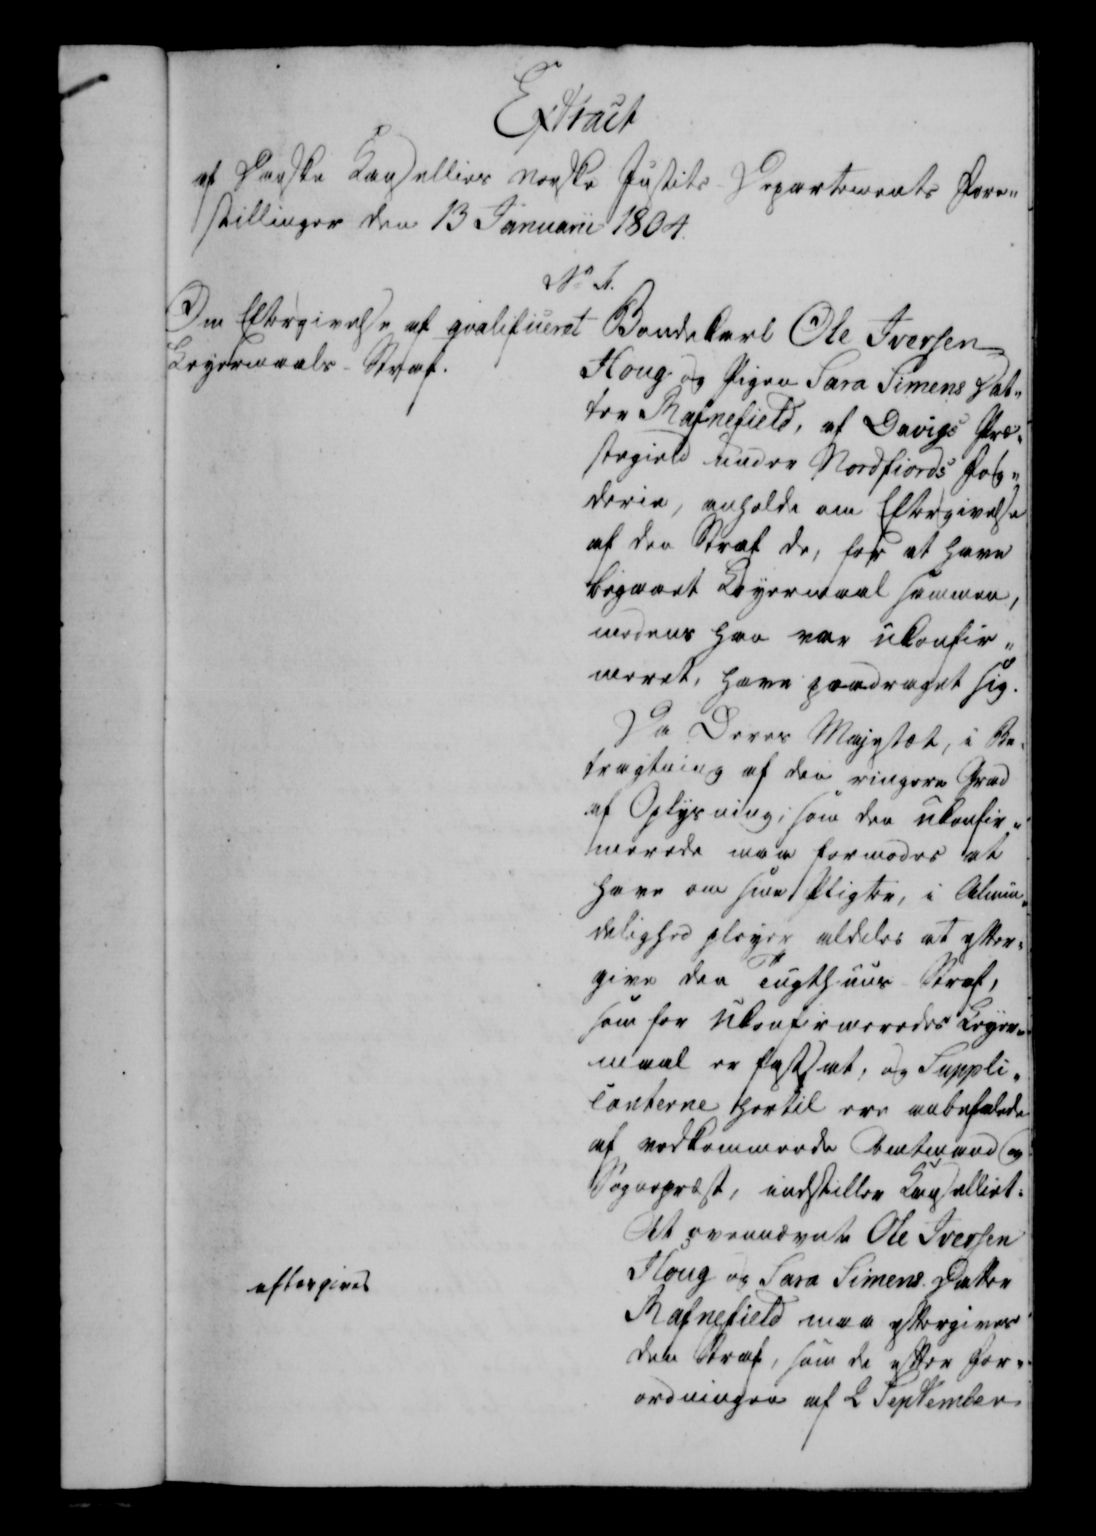 Extract
af Danske Kancelliets Norske Justits-Departements Fore-
stillinger den 13 Januarii 1804.
No 1.
Om Eftergivelse af qvalificeret
Leyermaals-Straf.
Bondekarl Ole Iversen
Houg og Pigen Sara Simens Dat-
ter Rafnefield, af Davigs Præ-
stegield under Nordfiords Fog-
derie, anholde om Eftergivelse
af den Straf de, for at have
begaaet Leyermaal sammen,
medens hun var ukonfir-
meret, have paadraget sig.
Da Deres Majestæt, i Be-
tragtning af den ringere Grad
af Oplysning, som den ukonfir-
merede maa formodes at
have om sine Pligter, i Almin-
delighed pleyer aldeles at efter-
give den Tugthuus-Straf,
som for Ukonfirmeredes Leyer-
maal er fastsat, og Suppli-
canterne hertil ere anbefalede
af vedkommende Amtmand og
Sognepræst, indstiller Kancelliet:
At ovennævnte Ole Iversen
Houg og Sara Simens Datter
Rafnefield maa eftergives
den Straf, som de efter For-
ordningen af 2 September
eftergives